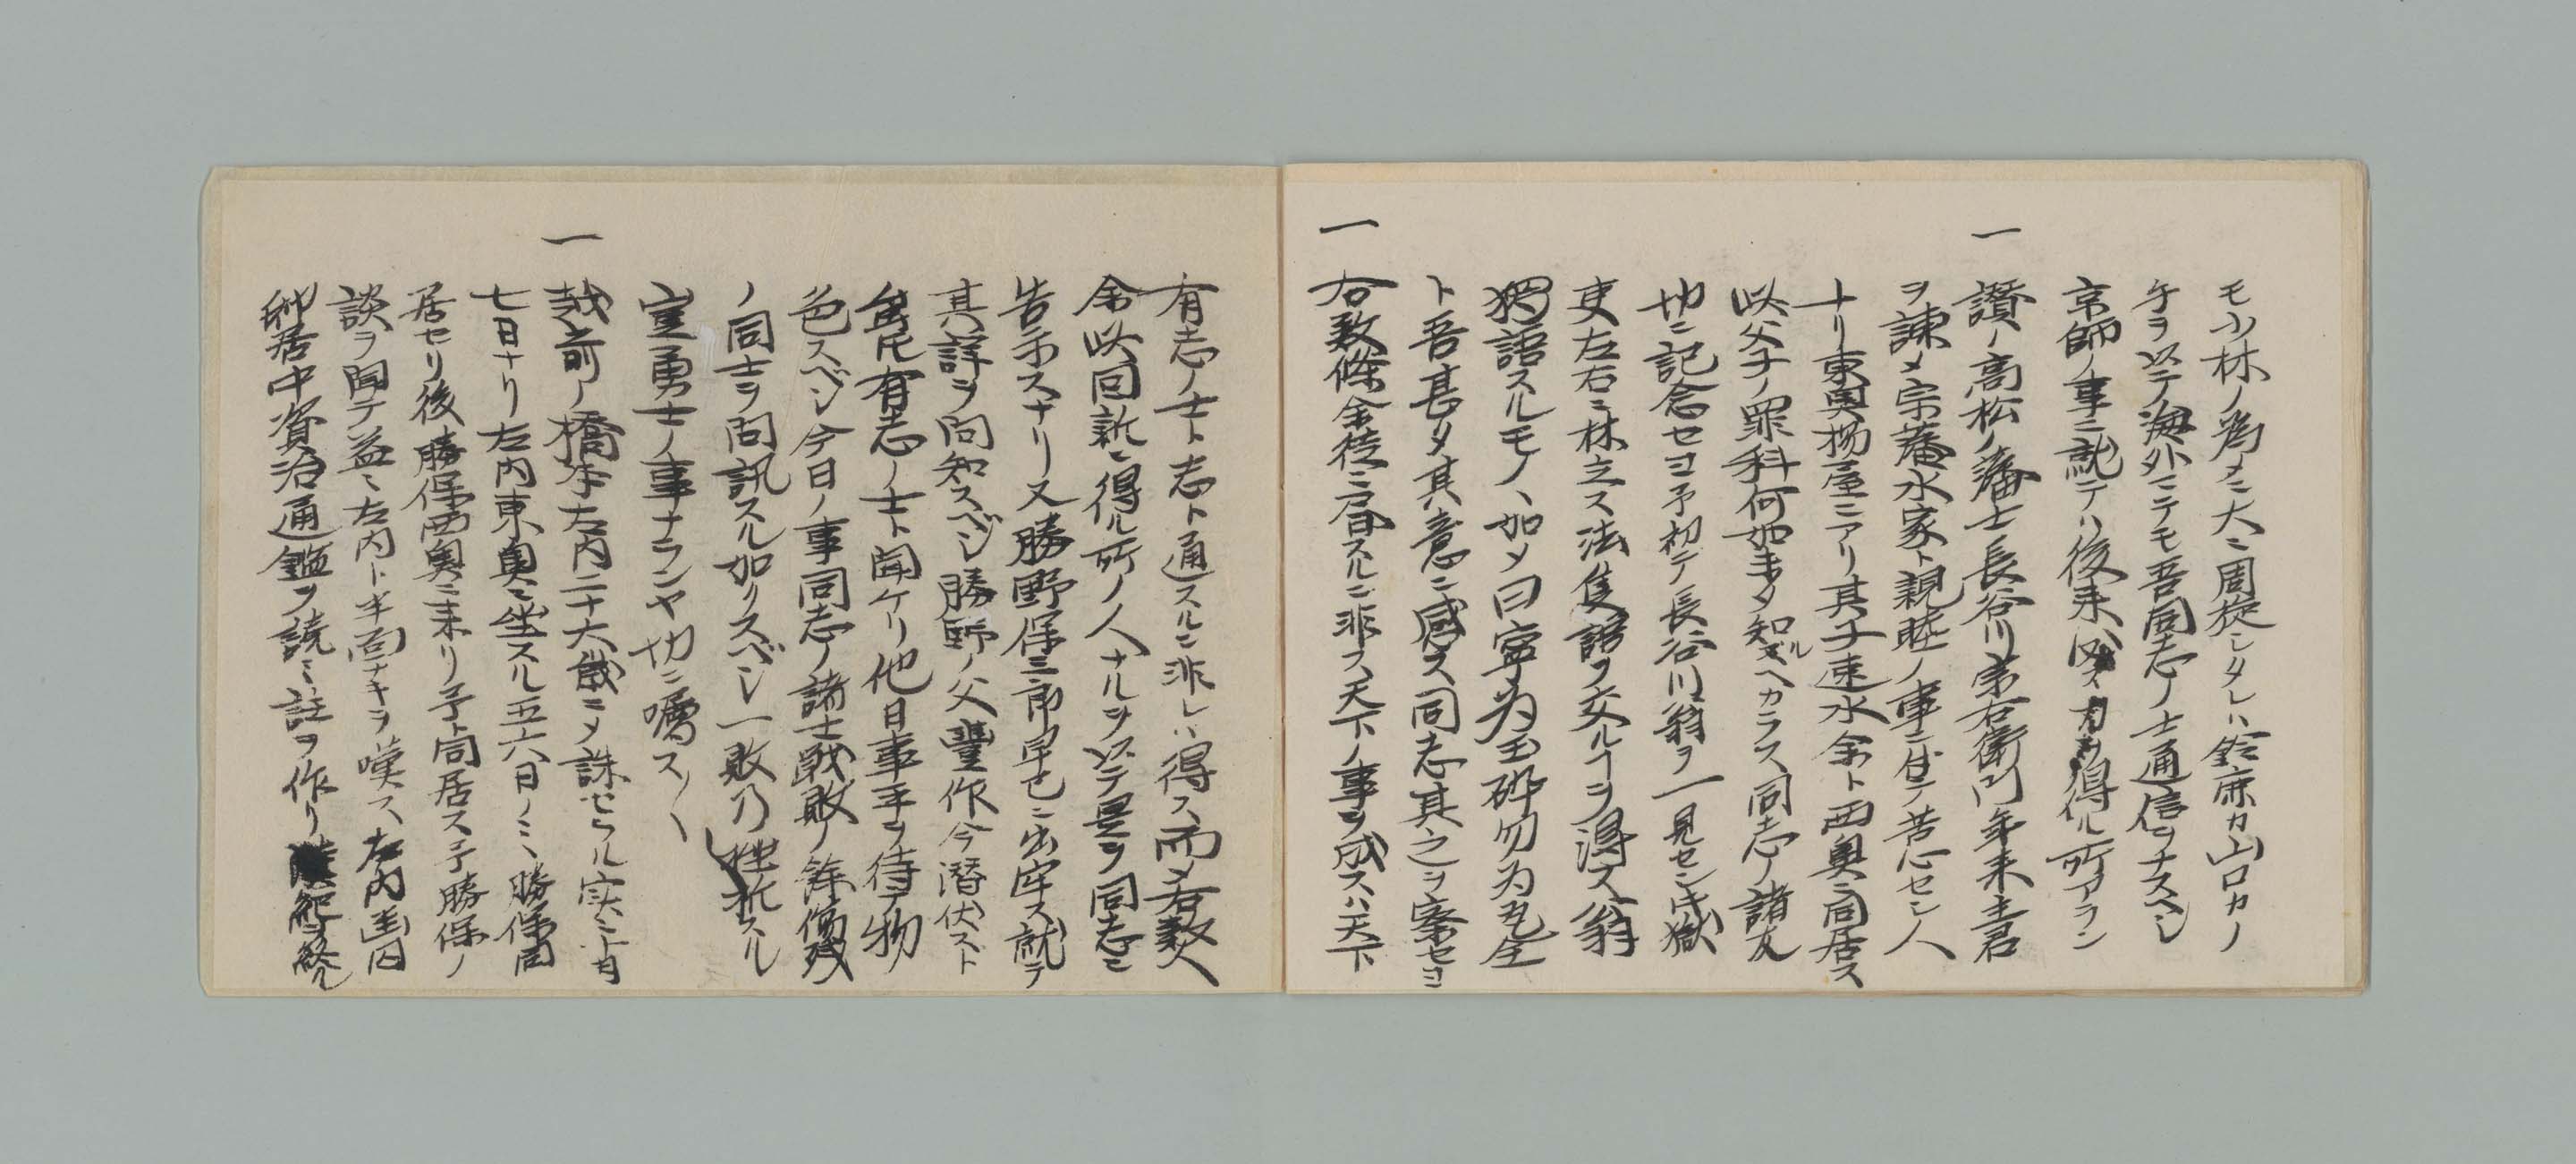 モ小林ノ為メニ大ニ周旋シタレハ鈴鹿カ山口カノ
手ヲ以テ海外ニテモ吾同志ノ士通信ヲナスヘシ
京師ノ事ニ就テハ後来必ス力ヲ得ル所アラン
一 讃ノ高松ノ藩士長谷川宗右衛門年来主君
ヲ諌メ宗藩水家ト親睦ノ事ニ付テ苦心セシ人
ナリ東奥揚屋ニアリ其子速水余ト西奥ニ同居ス
此父子ノ罪科何如未タ知ルヘカラス同志ノ諸友
切ニ記念セヨ予初テ長谷川翁ヲ一見セシ時獄
吏左右ニ林立ス法隻語ヲ交ルヿヲ得ス翁
獨語スルモノヽ如メ曰寧為玉砕勿為瓦全
ト吾甚タ其意ニ感ス同志其之ヲ察セヨ
一 右数條余徒ニ書スルニ非ス天下ノ事ヲ成スハ天下
有志ノ士ト志ト通スルニ非レハ得ス而メ右数人
余此回新ニ得ル所ノ人ナルヲ以テ是ヲ同志ニ
告示スナリ又勝野保三郎早已ニ出牢ス就テ
其詳ヲ問知スベシ勝野ノ父豊作今潜伏スト
雖𪜈有志ノ士ト聞ケリ他日事平ヲ待テ物
色スベシ今日ノ事同志ノ諸士戦敗ノ餘傷残
ノ同士ヲ問訊スル如クスベシ一敗乃挫折スル
豈勇士ノ事ナランヤ切ニ囑ス〱
一 越前ノ橋本左内二十六歳ニメ誅セラル実ニ十月
七日ナリ左内東奥ニ坐スル五六日ノミ勝保同
居セリ後勝保西奥ニ来リ予ト同居ス予勝保ノ
談ヲ聞テ益々左内ト半面ナキヲ嘆ス左内幽囚
邸居中資治通鑑ヲ読ミ註ヲ作リ漢紀ヲ終ル